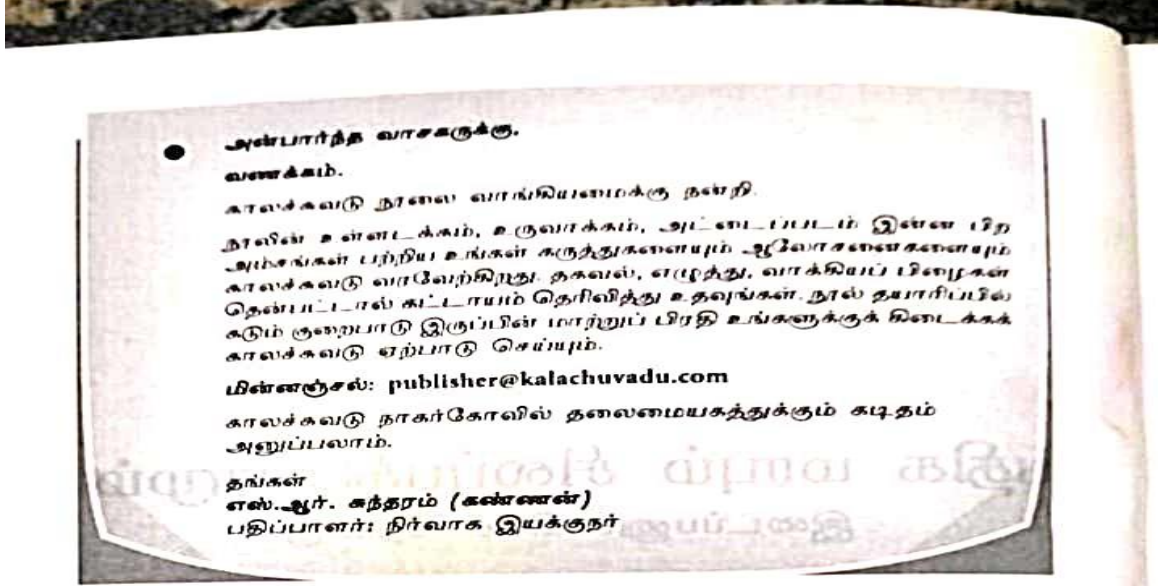 அன்பார்ந்த வாசகருக்கு,
வணக்கம்.
காலச்சுவடு நூலை வாங்கியமைக்கு நன்றி.
நூலின் உள்ளடக்கம், உருவாக்கம், அட்டைப்படம் இன்ன பிற
அம்சங்கள் பற்றிய உங்கள் கருத்துகளையும் ஆலோசனைகளையும்
காலச்சுவடு வரவேற்கிறது. தகவல், எழுத்து, வாக்கியப் பிழைகள்
தென்பட்டால் கட்டாயம் தெரிவித்து உதவுங்கள். நூல் தயாரிப்பில்
கடும் குறைபாடு இருப்பின் மாற்றுப் பிரதி உங்களுக்குக் கிடைக்கக்
காலச்சுவடு ஏற்பாடு செய்யும்.
மின்னஞ்சல்: publisher@kalachuvadu.com
காலச்சுவடு நாகர்கோவில் தலைமையகத்துக்கும் கடிதம்
அனுப்பலாம்.
தங்கள்
எஸ்.ஆர். சுந்தரம் (கண்ணன்)
பதிப்பாளர்: நிர்வாக இயக்குநர்